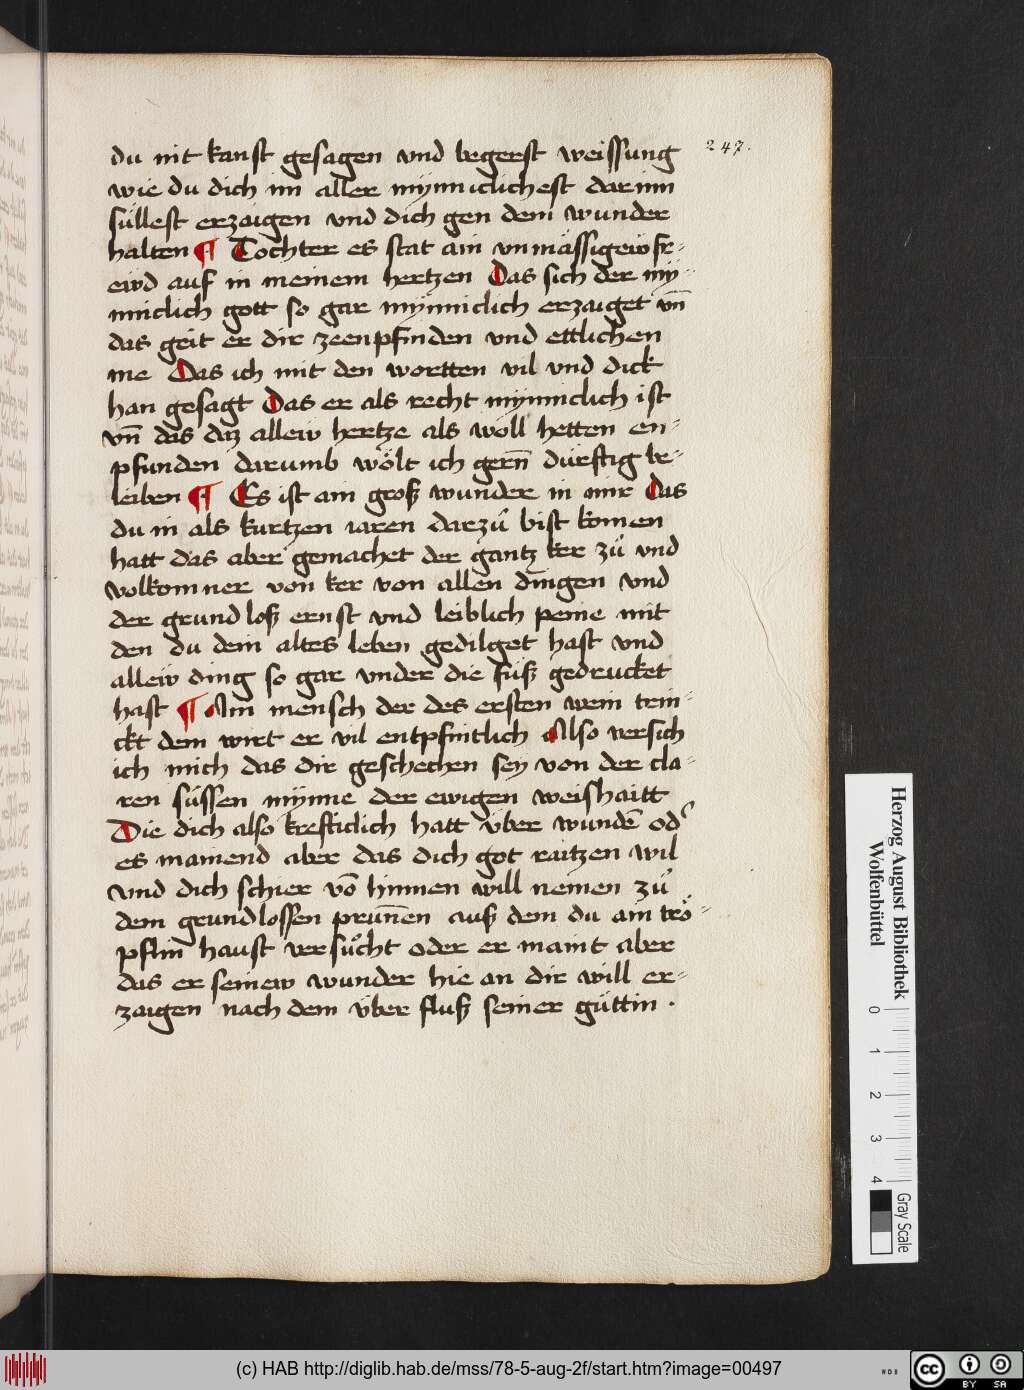 247.
du nit kanst gesagen vnd begerst weissung
wie du dich im aller mynniclichest dar inn
süllest erzaigen vnd dich gen dem wunder
halten ¶ Tochter es stat ain vnmässigew fr-
ewd auf in meinem hertzen Das sich der my-
nniclich gott so gar mynniclich erzaiget vn̄
das geit er dir zeenpfinden vnd ettlichen
me Das ich mit den wortten vil vnd dick
han gesagt Das er als recht mynniclich ist
vn̄ das daz allew hertze als woll hetten en-
pfunden darumb wölt ich gern̄ dürftig be-
leiben ¶ Es ist ain groß wunder in mir Das
du in als kurtzen iaren darzů bist komen
hatt das aber gemachet der gantz ker zů vnd
volkomner von ker von allen dingen vnd
der grundloß ernst vnd leiblich peine mit
den du dein altes leben gedilget hast vnd
allew ding so gar vnder die füß gedrucket
hast ¶ Ain mensch der des ersten wein trin-
ckt dem wirt er vil entpfintlich Also versich
ich mich das dir geschechen sey von der cla-
ren süssen mynne der ewigen weishaitt
Die dich also krefticlich hatt über wundē od'
es mainend aber das dich got raitzen wil
vnd dich schier vō hinnen will nemen zů
dem grundlossen prunnen auß dem du ain trö-
pflin haust versůcht oder er maint aber
das er seinew wunder hie an dir will er-
zaigen nach dem über fluß seiner güttin .
Herzog August Bibliothek
Wolfenbüttel
0 1 2 3 4
Gray Scale
(c) HAB http://diglib.hab.de/mss/78-5-aug-2f/start.htm?image=00497
cc BY SA